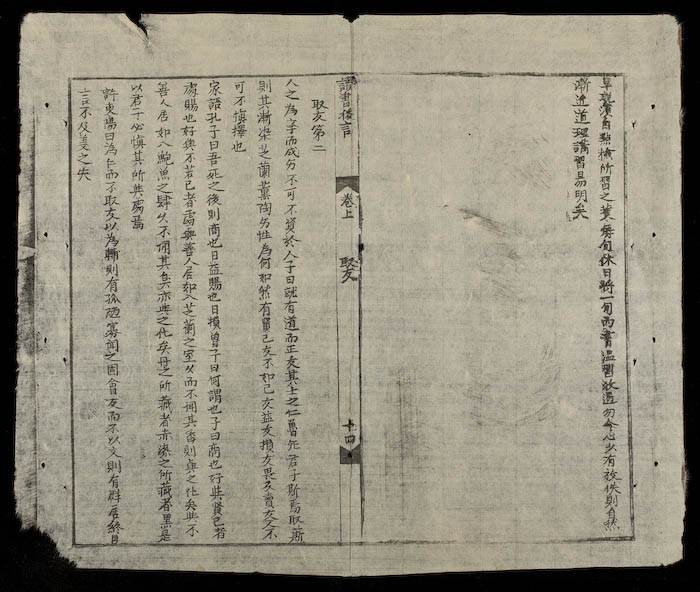 檢所習之業每旬休日將一旬內書溫習數過勿令心少有放佚則自然
漸近道理講習易明矣
讀書撮言
卷上
取友
十四
取友第二
人之為學而成身不可不資於人子曰就有道而正友其士之仁魯無君子斯焉取斯
則其漸染芝蘭薰陶身性為何如然有賢己友不如己友益友損友畏友賣友不
可不慎擇也
家語孔子曰吾死之後則商也日益賜也日損曾子曰何謂也子曰商也好與賢己者
處賜也好與不若己者處與善人居如入芝蘭之室久而不聞其香則與之化矣與不
善人居如入鮑魚之肆久不聞其臭亦與之化矣丹之所藏者赤漆之所藏者黑是
以君子必慎其所與處焉
許東陽曰為仁而不取友以為輔則有孤陋寡聞之固會友而不以文則有群居終日
言不及義之失